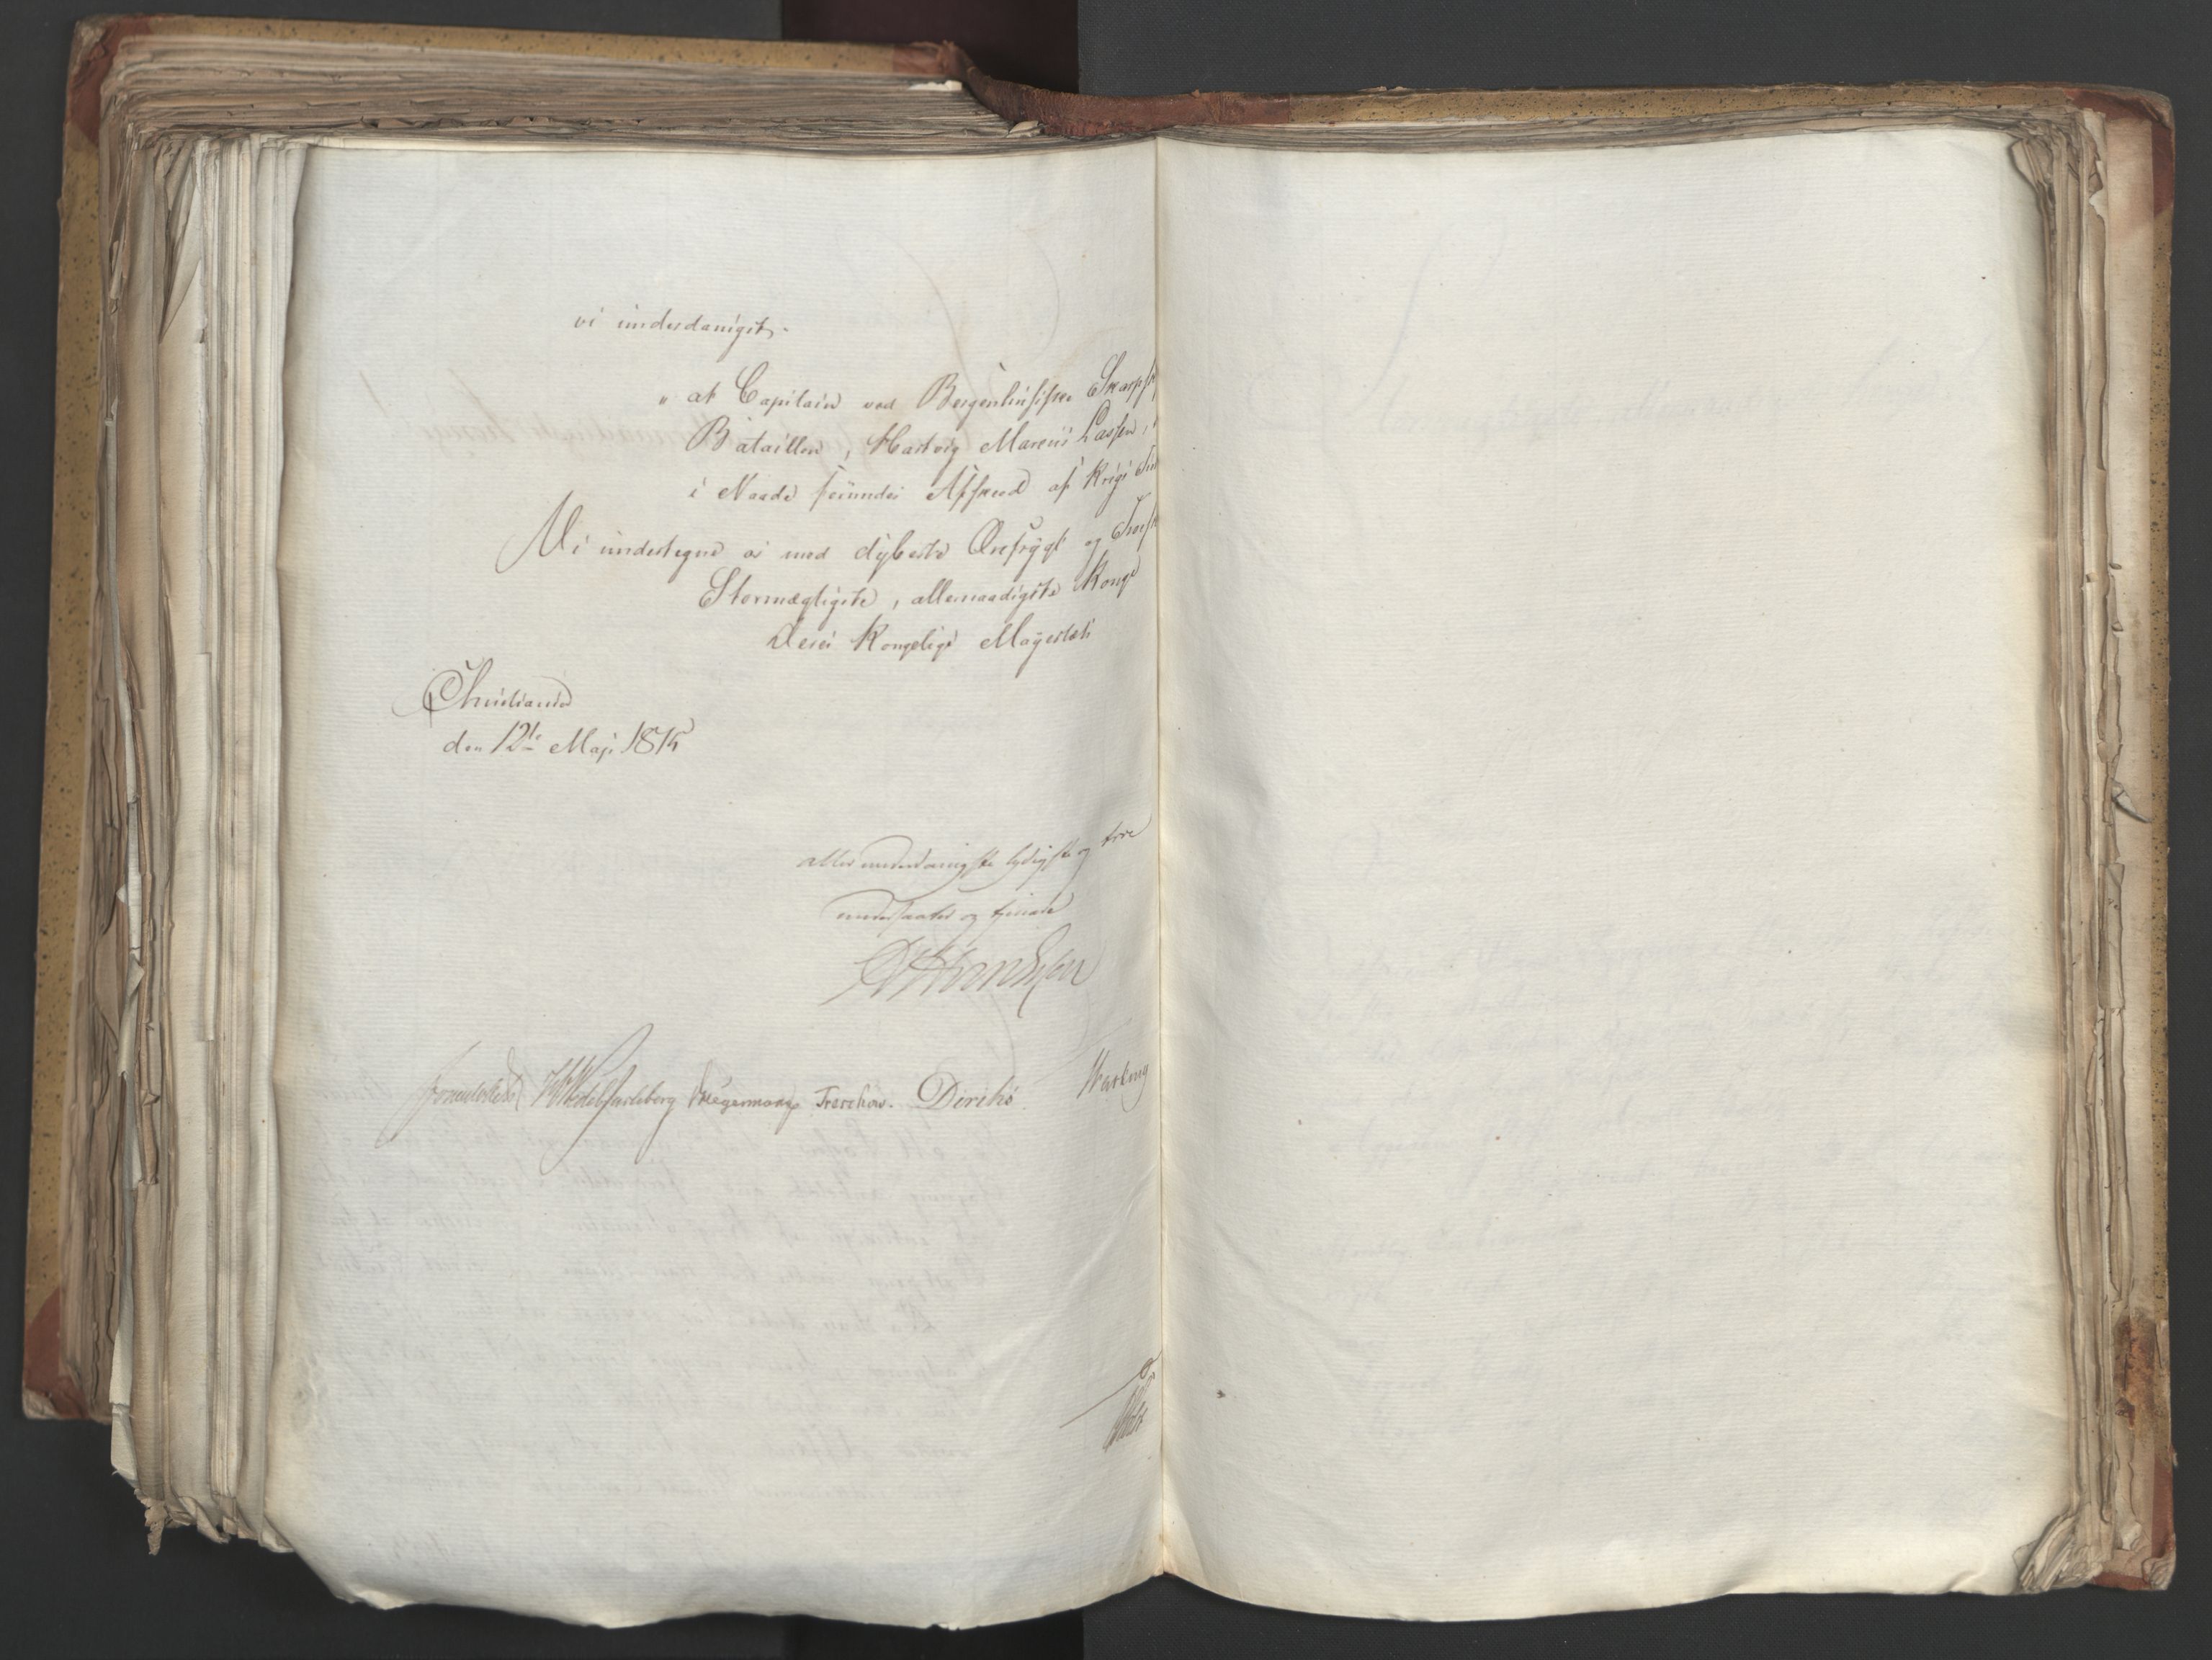 vi underdanigst.
" at Capitain ved Bergenhusiske Skarpsk
Bataillon, Hartvig Marcus Lassen,
i Naade forundes Afskeed af Krigs
Vi undertegne os med dybeste Ærefrygt og Troesk
Stormægtigste, allernaadigste Konge
Deres Kongelige Majestæts
Christiania
den 12te Maji 1815
allerunderdanigste lydigste og troe
undersaatter og tjenere
Sommerhielm HWedelJarlsberg Hegermann Treschow. Diriks
Holst